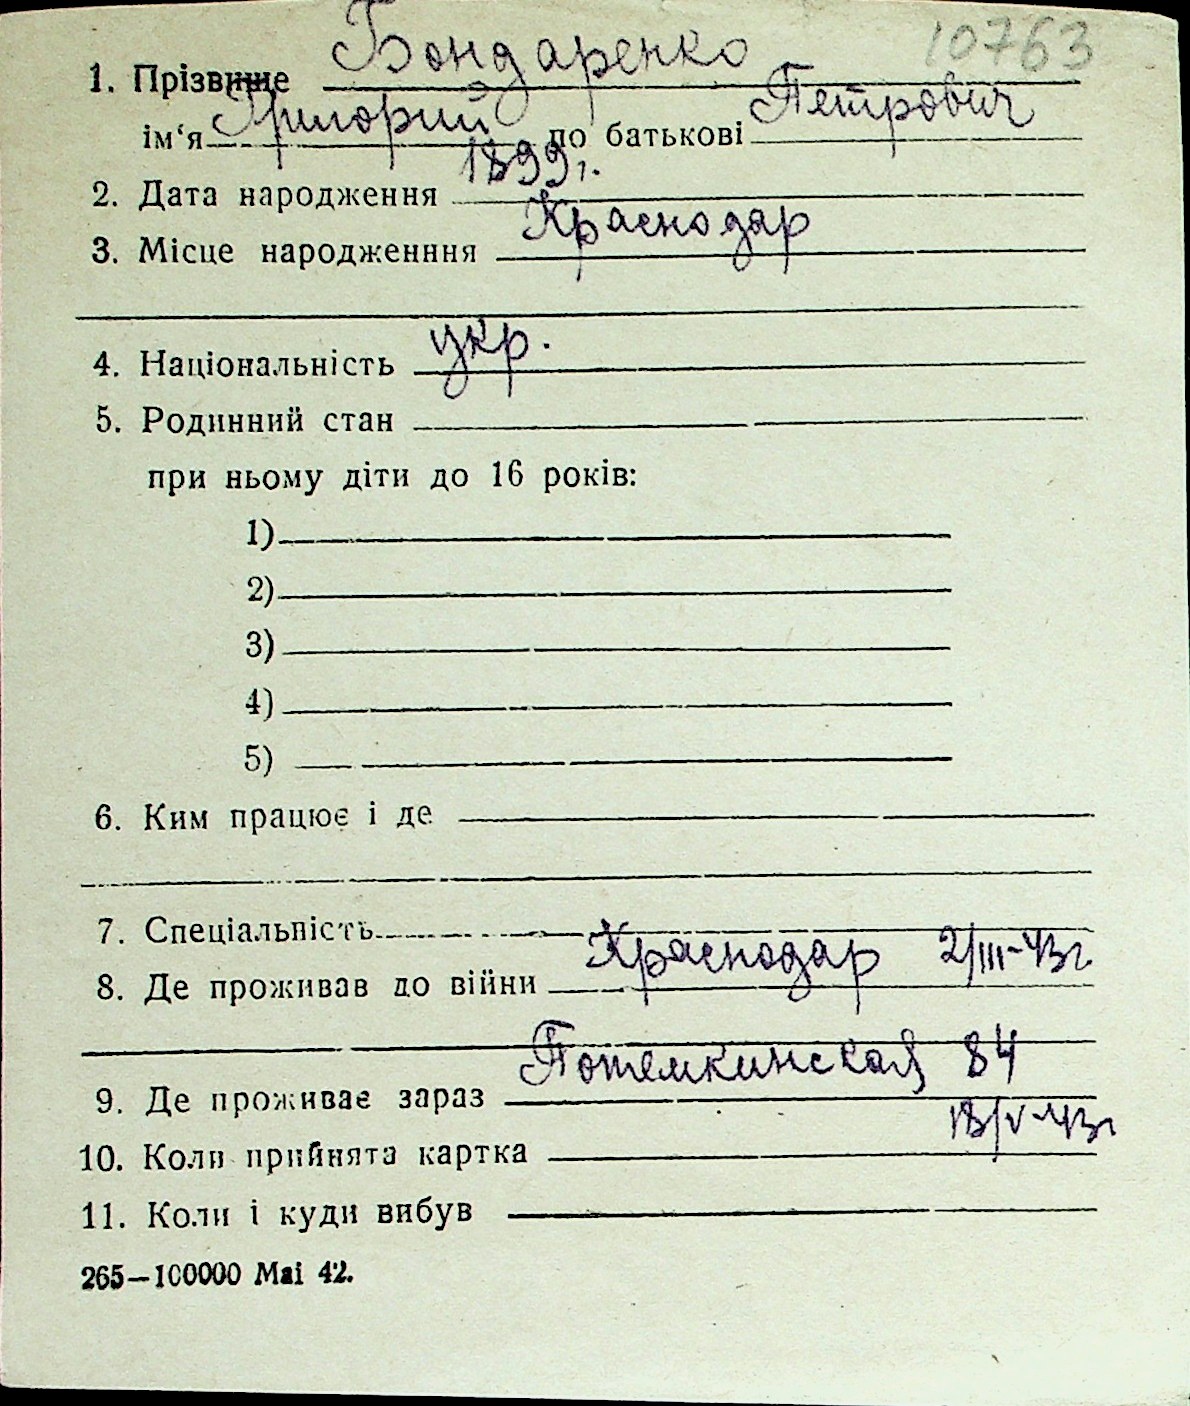 10763
1. Прізвище Бондаренко
ім‘я Григорий по батькові Петрович
2. Дата народження 1899 г.
3. Місце народженння Краснодар
4. Національність укр.
5. Родинний стан
при ньому діти до 16 років:
1)
2)
3)
4)
5)
6. Ким працює і де
7. Спеціальність
8. Де проживав до війни Краснодар 2/III-43г.
9. Де проживає зараз Потемкинская 84
10. Коли прийнята картка 18/V-43г
11. Коли і куди вибув
265—100000 Mai 42.